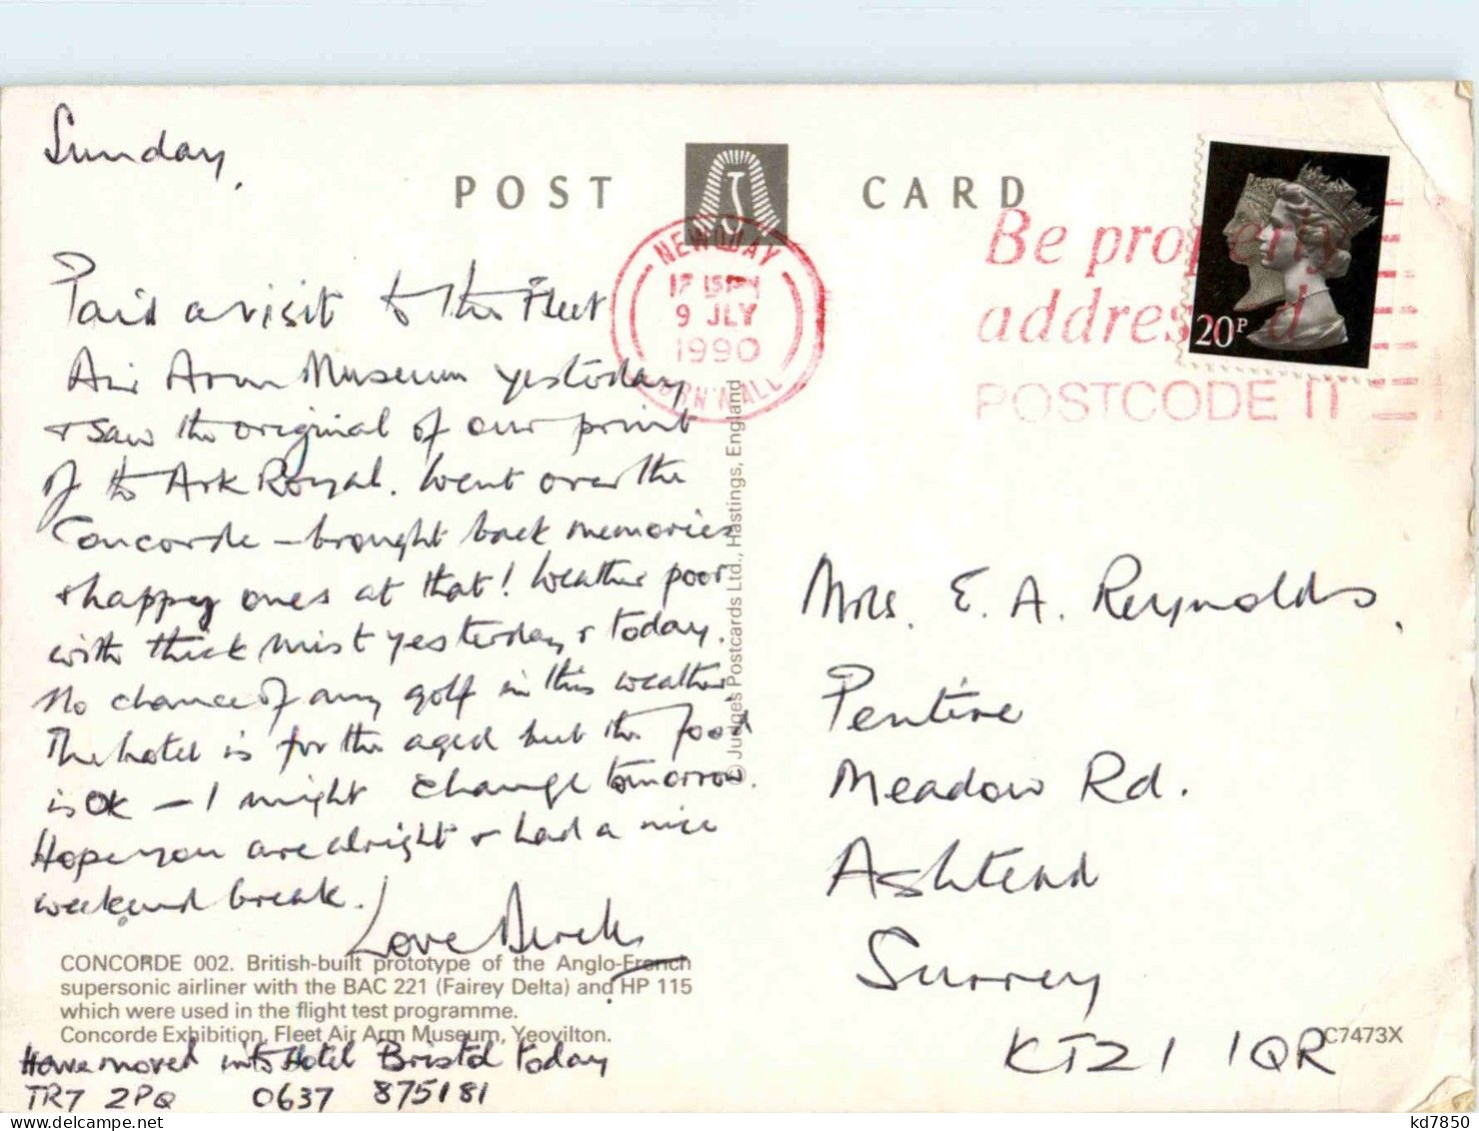 Sunday,
POST CARD
Paid a visit to the Fleet
Air Arm Museum yesterday
& saw the original of our print
of the Ark Royal. Went over the
Concorde – brought back memories
& happy ones at that! Weather poor
with thick mist yesterday & today.
No chance of any golf in this weather
The hotel is for the aged but the food
is OK – I might change tomorrow.
Hope you are alright & had a nice
weekend break.
Love Derek
CONCORDE 002. British-built prototype of the Anglo-French
supersonic airliner with the BAC 221 (Fairey Delta) and HP 115
which were used in the flight test programme.
Concorde Exhibition, Fleet Air Arm Museum, Yeovilton.
Have moved into Hotel Bristol today
TR7 2PQ 0637 875181
© Judges Postcards Ltd., Hastings, England
NEWQUAY
12 15 PM
9 JLY
1990
CORNWALL
Be properly
addressed
POSTCODE IT
20P
Mrs. E. A. Reynolds,
Pentire
Meadow Rd.
Ashtead
Surrey
KT21 1QR
C7473X
kd7850